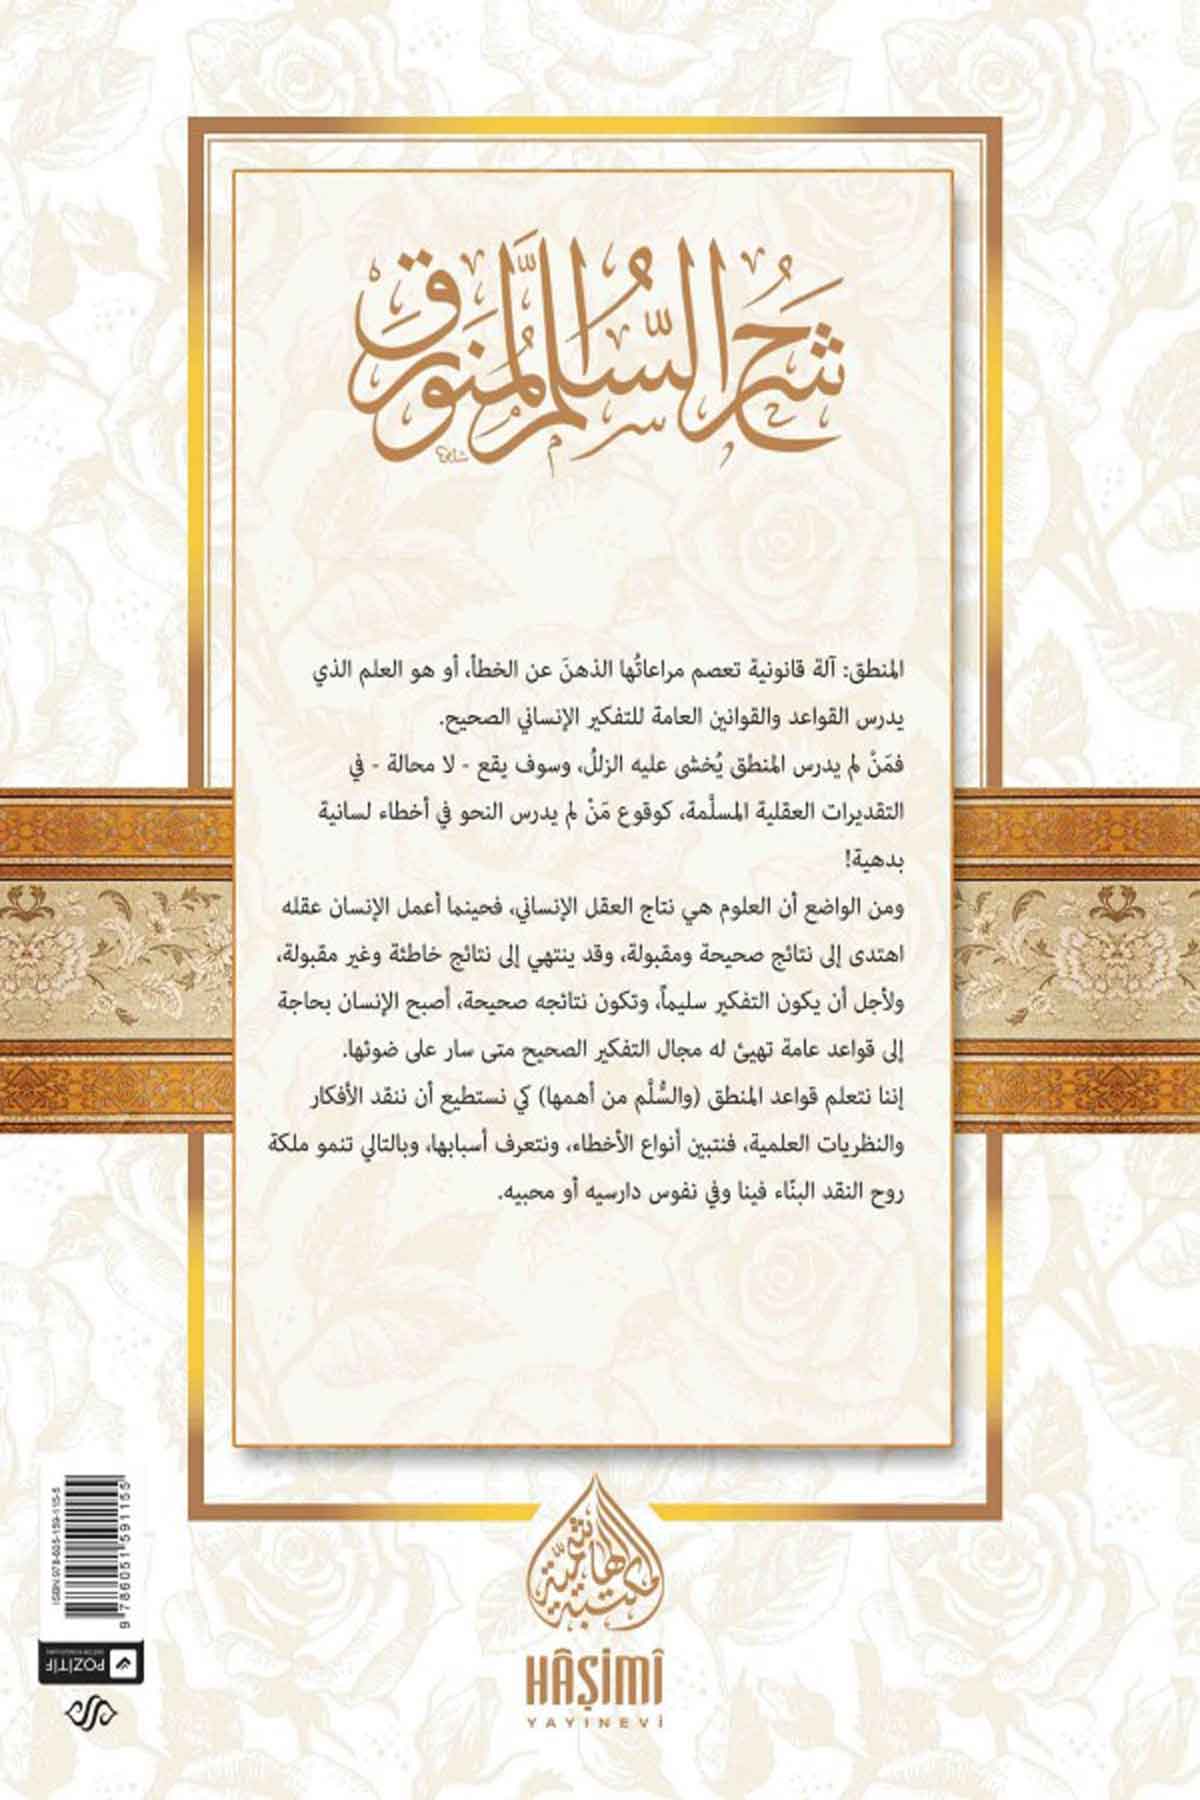 شَرْحُ السُّلَّمِ المُنَوْرَقِ
المنطق: آلة قانونية تعصم مراعاتُها الذهنَ عن الخطأ، أو هو العلم الذي
يدرس القواعد والقوانين العامة للتفكير الإنساني الصحيح.
فمَنْ لم يدرس المنطق يُخشى عليه الزللُ، وسوف يقع - لا محالة - في
التقديرات العقلية المسلَّمة، كوقوع مَنْ لم يدرس النحو في أخطاء لسانية
بدهية!
ومن الواضع أن العلوم هي نتاج العقل الإنساني، فحينما أعمل الإنسان عقله
اهتدى إلى نتائج صحيحة ومقبولة، وقد ينتهي إلى نتائج خاطئة وغير مقبولة،
ولأجل أن يكون التفكير سليماً، وتكون نتائجه صحيحة، أصبح الإنسان بحاجة
إلى قواعد عامة تهيئ له مجال التفكير الصحيح متى سار على ضوئها.
إننا نتعلم قواعد المنطق (والسُّلَّم من أهمها) كي نستطيع أن ننقد الأفكار
والنظريات العلمية، فنتبين أنواع الأخطاء، ونتعرف أسبابها، وبالتالي تنمو ملكة
روح النقد البنّاء فينا وفي نفوس دارسيه أو محبيه.
مكتبة الهاشمية
HÂŞİMÎ
YAYINEVİ
ISBN: 978-605-159-115-5
9 786051 591155
POZİTİF